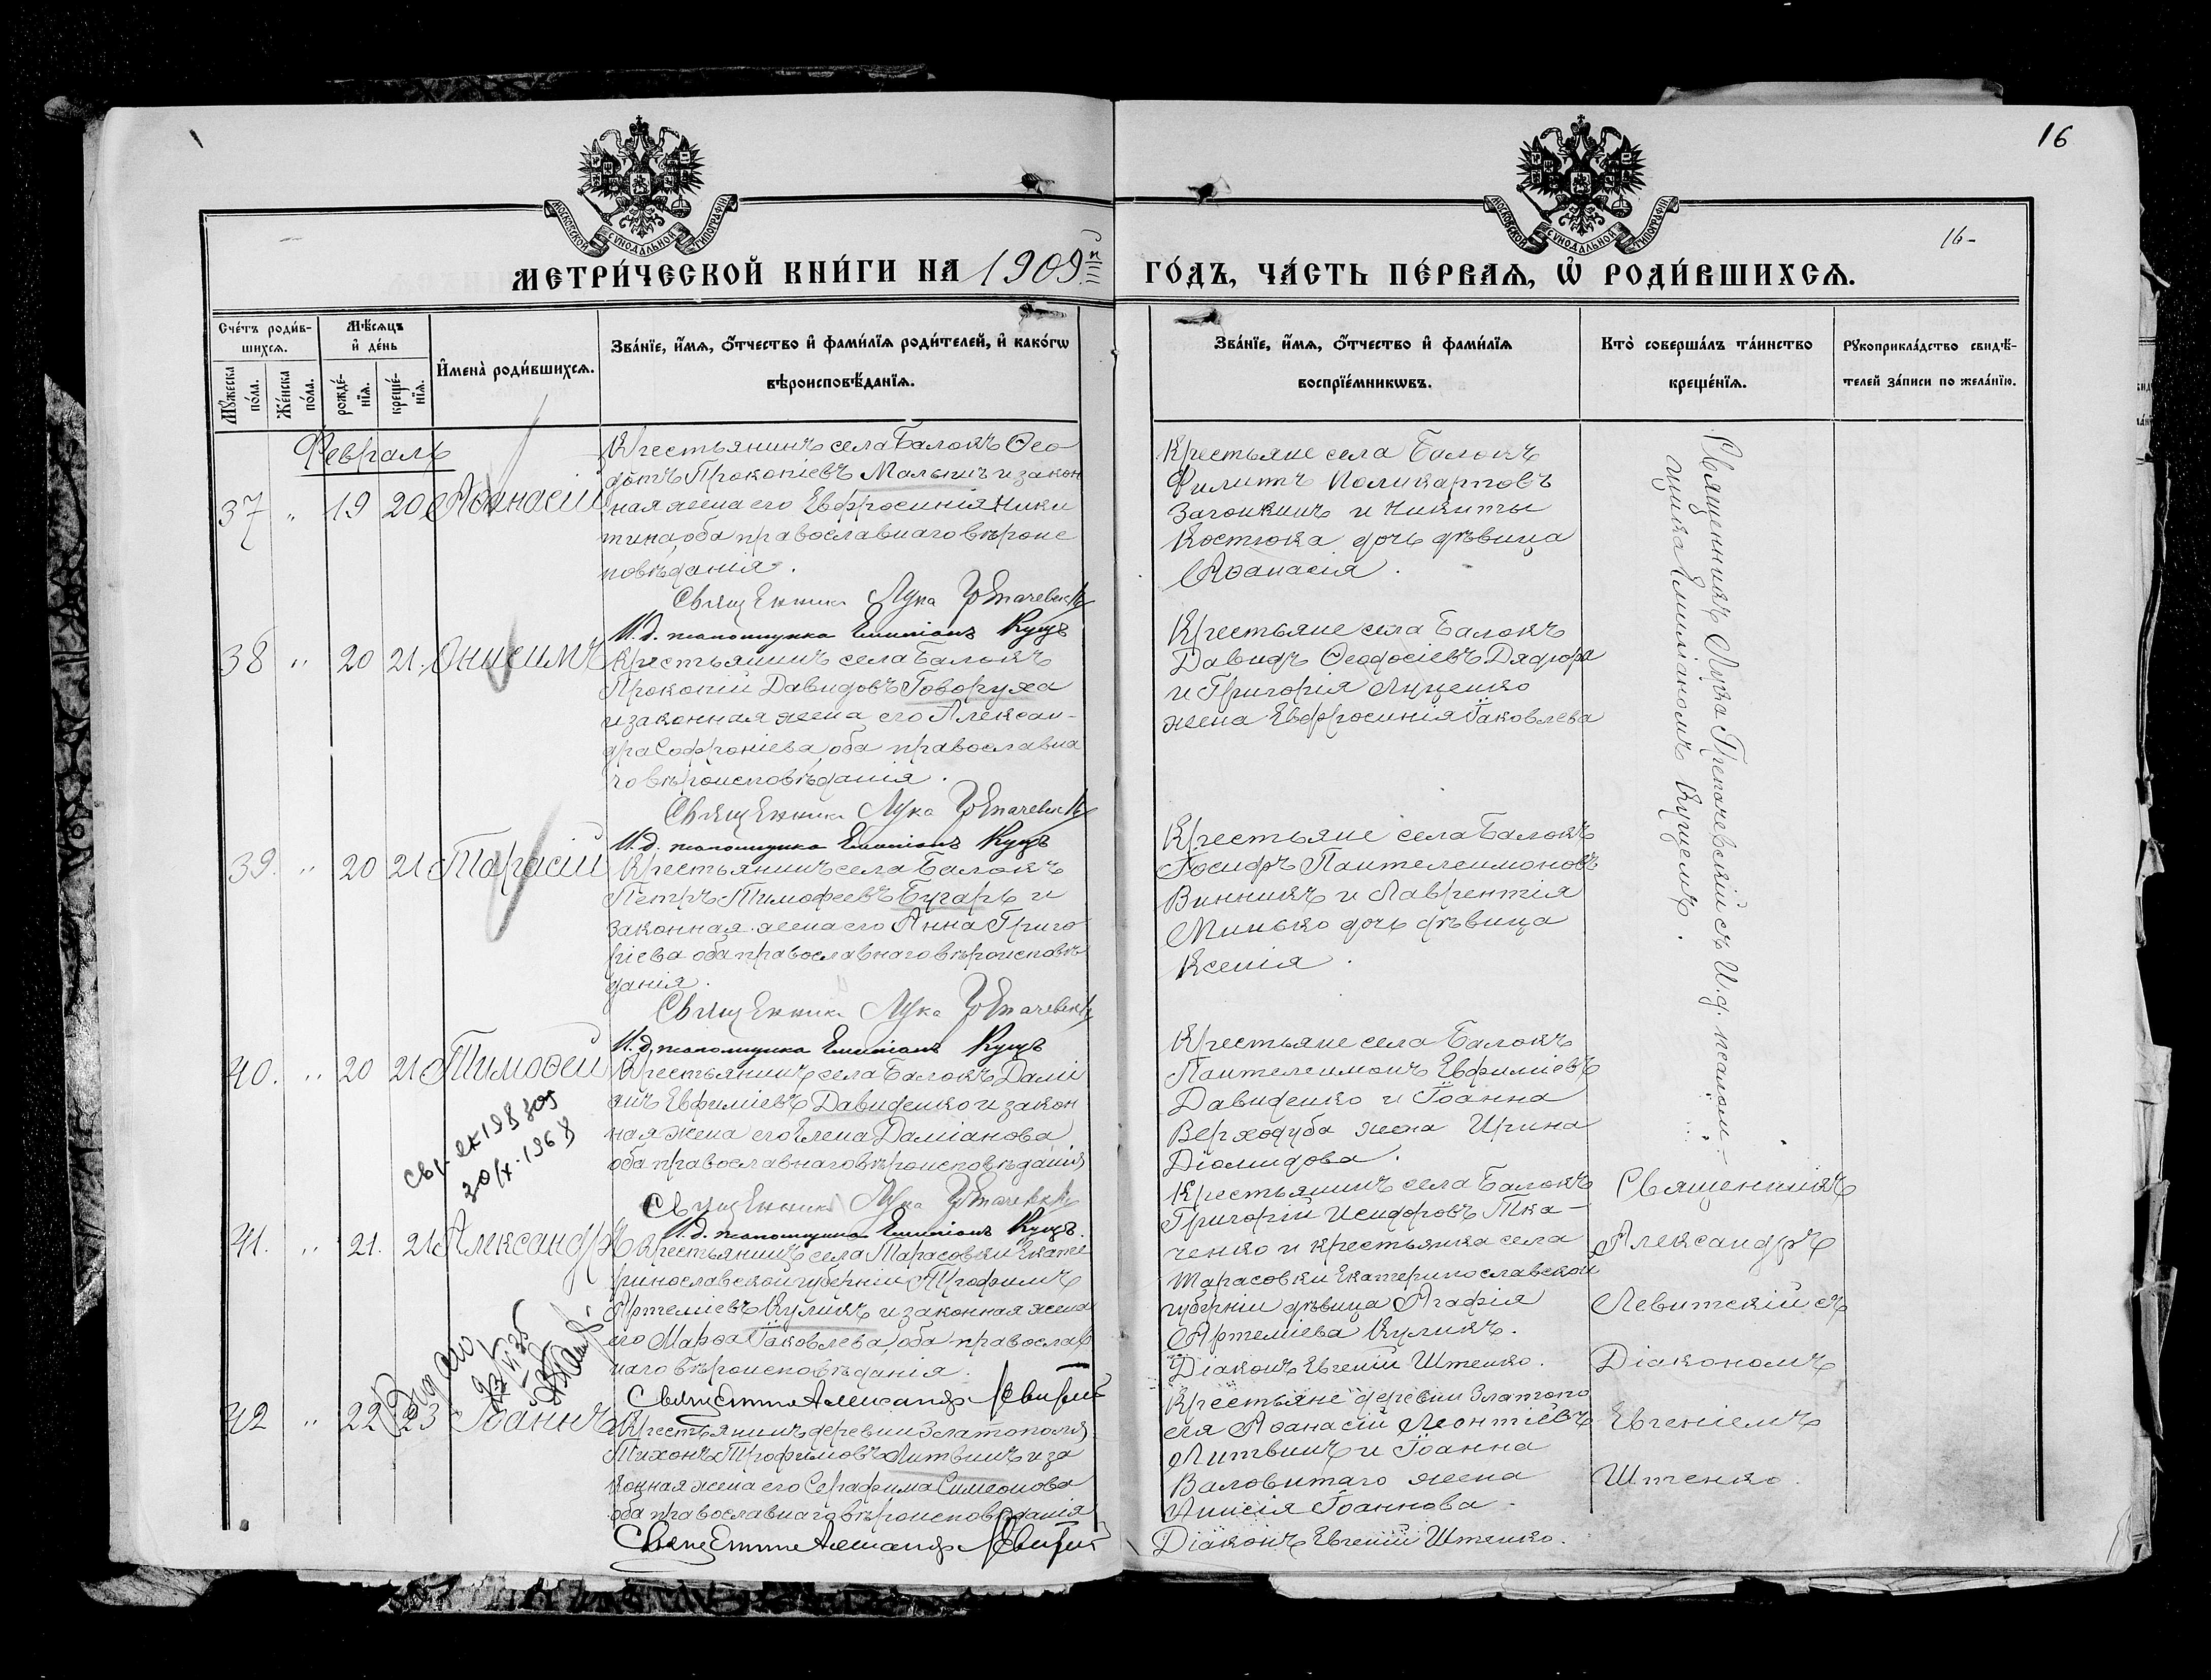 16
16-
МОСКОВСКОЙ СУНОДАЛЬНОЙ ТИПОГРАФІИ
МОСКОВСКОЙ СУНОДАЛЬНОЙ ТИПОГРАФІИ
МЕТРИ́ЧЕСКОЙ КНИ́ГИ НА 1909й ГО́ДЪ, ЧА́СТЬ ПЕ́РВАѦ, Ѡ҆ РОДИ́ВШИХСѦ.
Сче́тъ роди́в-
шихсѧ.
Мꙋ́жеска по́ла.
Же́нска по́ла.
Мѣ́сѧцъ
и҆ де́нь
рожде́-
нїѧ.
креще́-
нїѧ.
И҆мена̀ роди́вшихсѧ.
Зва́нїе, и҆́мѧ, ѻ҆́тчество и҆ фами́лїѧ роди́телей, и҆ како́гѡ
вѣроисповѣ́данїѧ.
Зва́нїе, и҆́мѧ, ѻ҆́тчество и҆ фами́лїѧ
воспрїе́мникѡвъ.
Кто̀ соверша́лъ та́инство
креще́нїѧ.
Рꙋкоприкла́дство свидѣ́-
телей за́писи по жела́нїю.
Февраль
37 " 19 20 Аѳанасій
Крестьянинъ села Балокъ Ѳео
дотъ Прокопіевъ Малышъ и закон
ная жена его Евфросинія Ники
тина, оба православнаго вѣроис
повѣданія.
Священникъ Лука Гр
И.д. псаломщика Емиліанъ Кущъ
Крестьяне села Балокъ
Филиппъ Поликарповъ
и Никиты
Костюка дочь дѣвица
Аѳанасія.
38 " 20 21. Онисимъ
Крестьянинъ села Балокъ
Прокопій Давидовъ Говоруха
и законная жена его Алексан-
дра Софроніева, оба православна
го вѣроисповѣданія.
Священникъ Лука
И.д. псаломщика Емиліанъ Кущъ
Крестьяне села Балокъ
Давидъ Ѳеодосіевъ Дядюра
и Григорія Луценко
жена Евфросинія Іаковлева
39. " 20 21 Тарасій
Крестьянинъ села Балокъ
Петръ Тимофеевъ Бугаръ и
законная жена его Анна Григо
ріева оба православнаго вѣроисповѣ
данія.
Священникъ Лука
И.д. псаломщика Емиліанъ Кущъ
Крестьяне села Балокъ
Іосифъ Пантелеимоновъ
Винникъ и Лаврентія
Минько дочь дѣвица
Ксенія.
40. " 20 21 Тимоѳей
Крестьянинъ села Балокъ Дамі
анъ Евфиміевъ Давиденко и закон
ная жена его Елена Даміанова
оба православнаго вѣроисповѣданія
Священникъ Лука
И.д. псаломщика Емиліанъ Кущъ.
Крестьяне села Балокъ
Пантелеимонъ Евфиміевъ
Давиденко и Іоанна
Верходуба жена Ирина
Діомидова.
Священникъ Лука Гретачевскій съ И.д. псалом-
щика Емиліаномъ Кущемъ.
41. " 21. 21 Александръ
Крестьянинъ села Тарасовки Екате
ринославской губерніи Трофимъ
Артеміевъ Куликъ и законная жена
его Марѳа Іаковлева, оба православ
наго вѣроисповѣданія.
Священникъ Александръ Левитскій
Крестьянинъ села Балокъ
Григорій Исидоровъ Тка-
ченко и крестьянка села
Тарасовки Екатеринославской
губерніи дѣвица Агафія
Артеміева Куликъ.
Діаконъ Евгеній Штенко.
Священникъ
Александръ
Левитскій съ
Діакономъ
Евгеніемъ
Штенко.
42 " 22 23 Іоаннъ
Крестьянинъ деревни Златополя
Тихонъ Трофимовъ Литвинъ и за
конная жена его Серафима Симеонова
оба православнаго вѣроисповѣданія
Священникъ Александръ Левитскій
Крестьяне деревни Златопо
ля Аѳанасій Леонтіевъ
Литвинъ и Іоанна
Валовитаго жена
Анисія Іоаннова.
Діаконъ Евгеній Штенко.